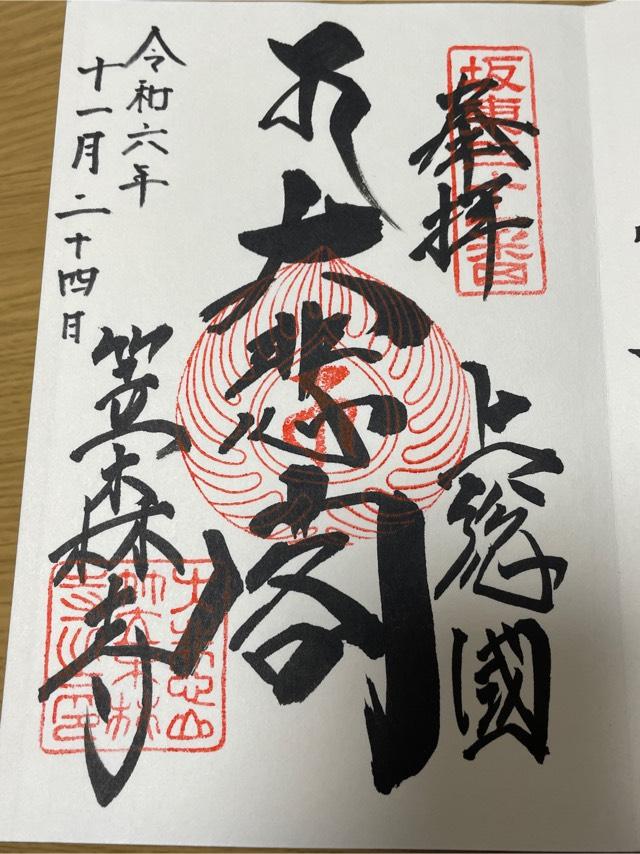 坂東三十一番
奉拝
上総國
大悲閣
笠森寺
令和六年
十一月二十四日